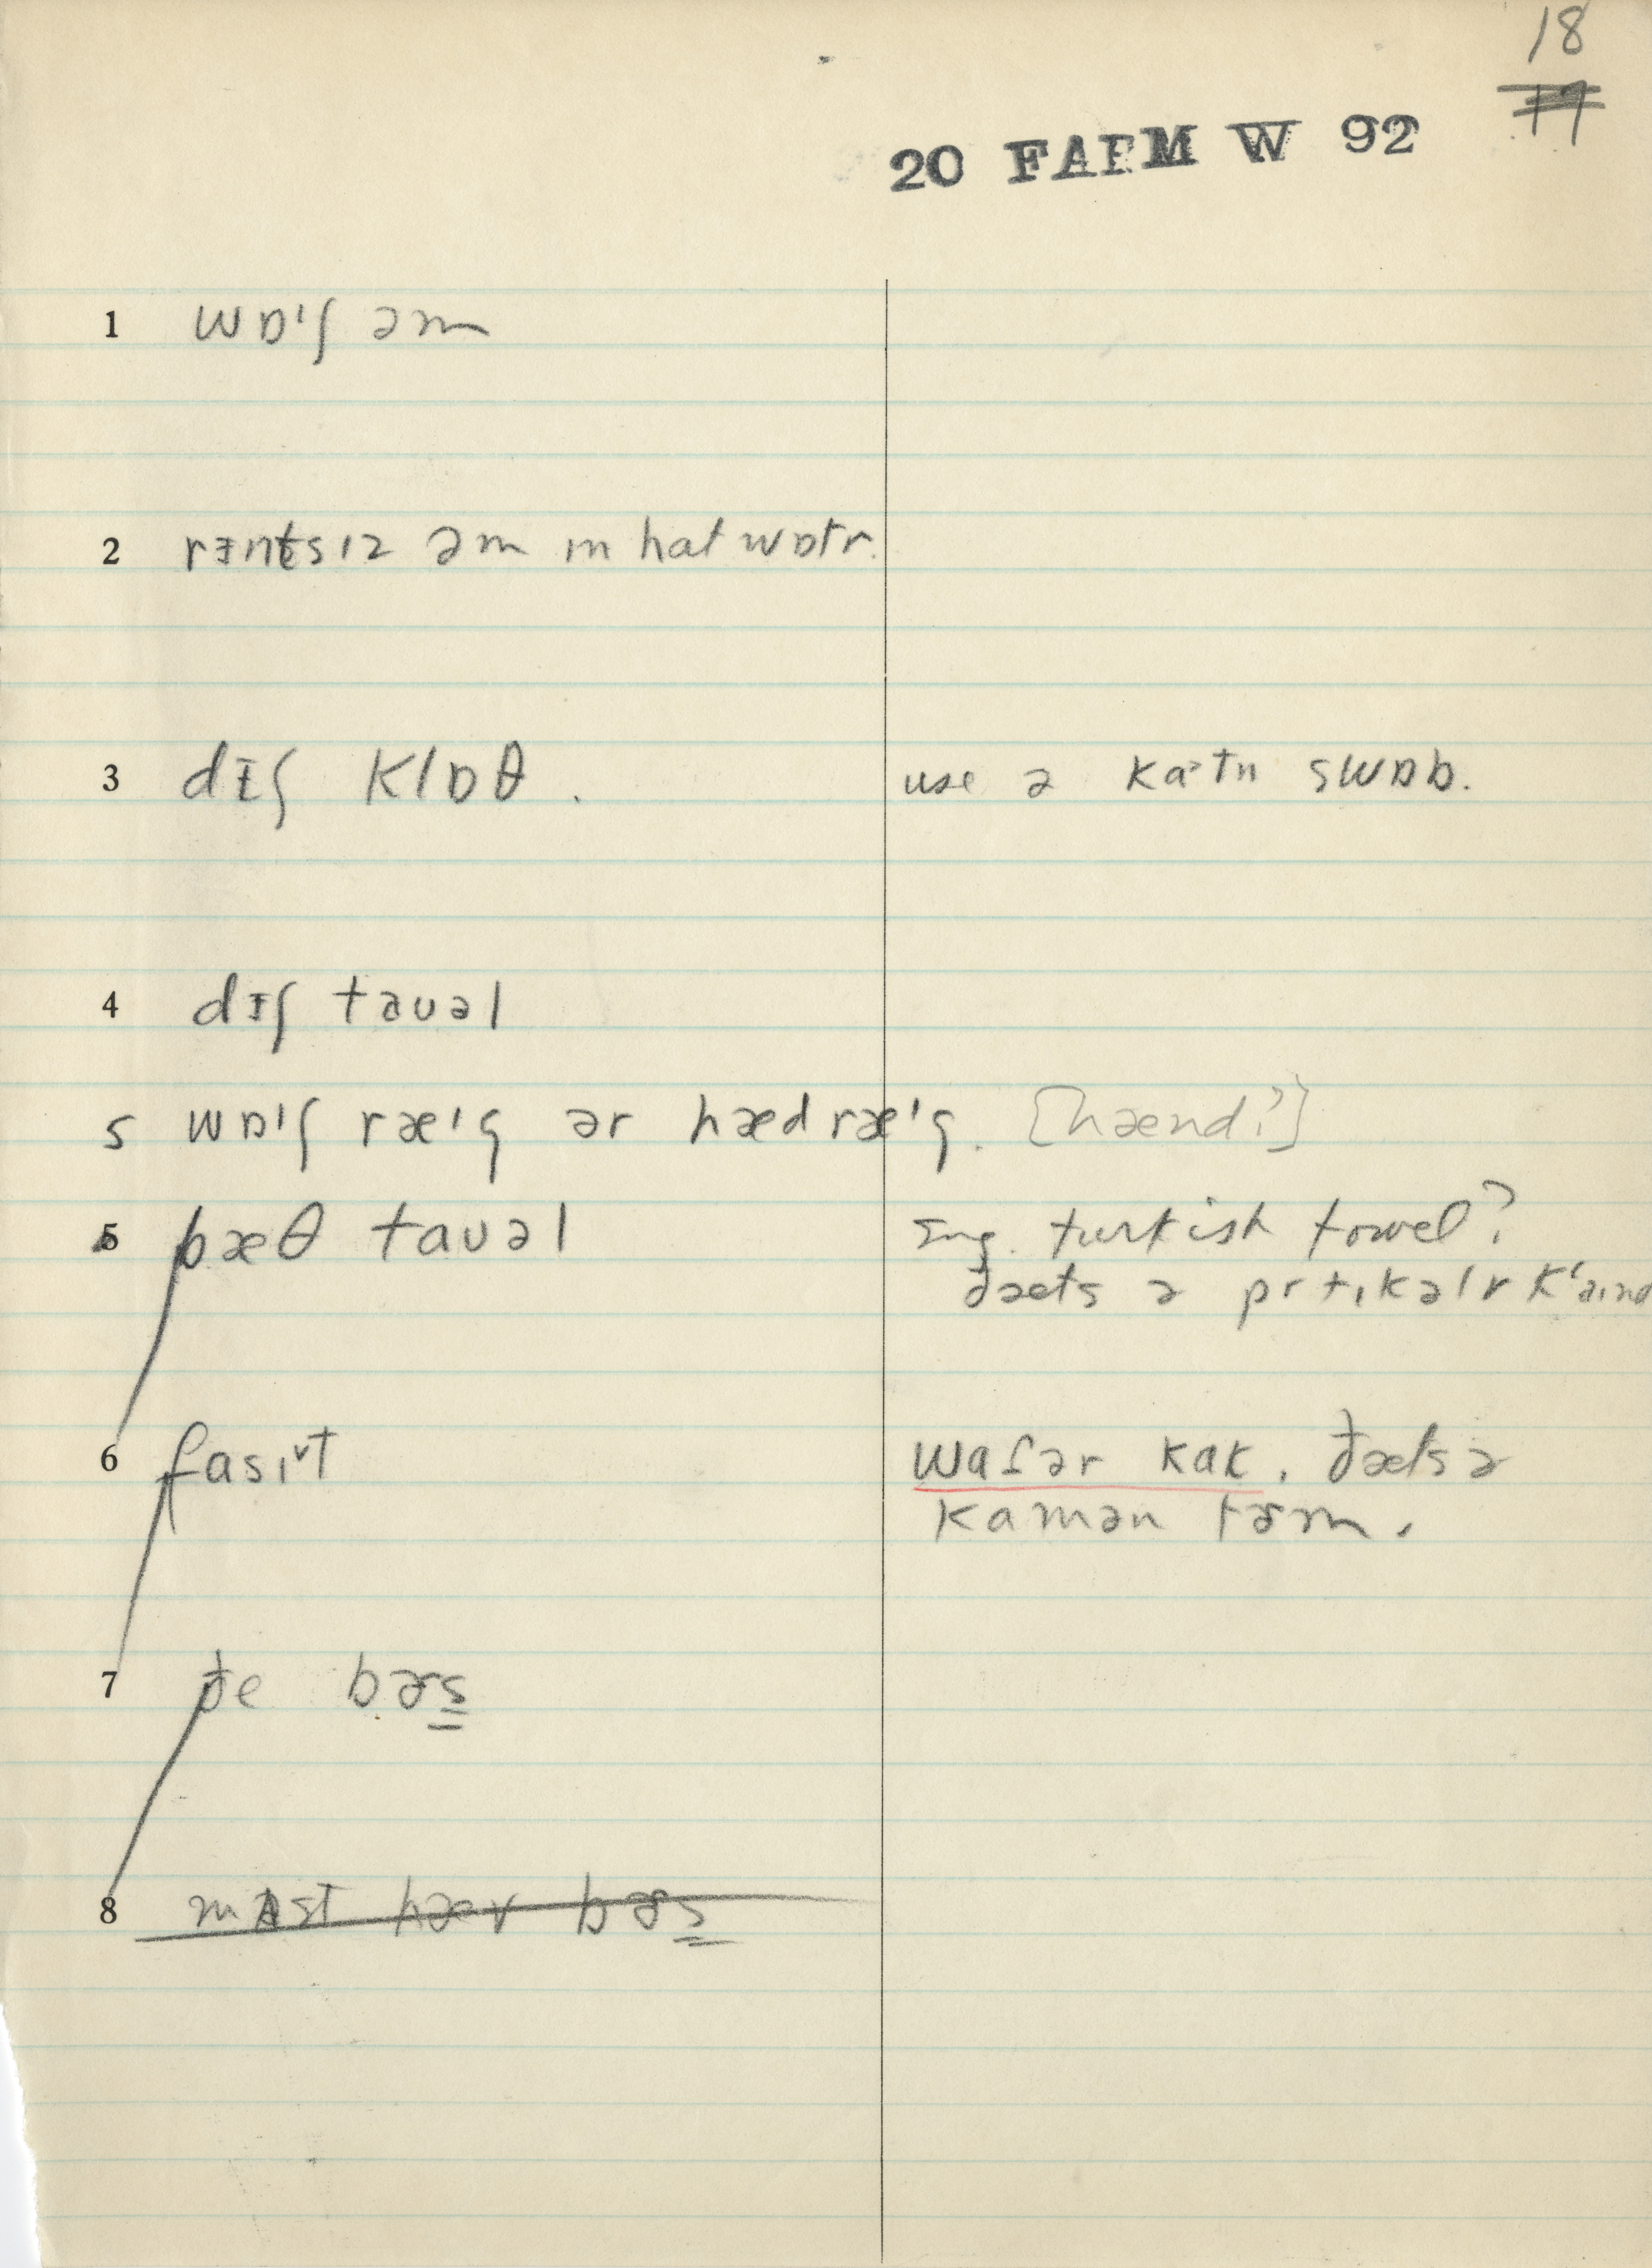 18
17
20 FARM W 92
1 wɒ'ʃ əm
2 rɪntsɪz əm ɪn hat wɒtr.
3 dɪʃ klɒθ. use ə katn swɒb.
4 dɪʃ tauəl
5 wɒ'ʃ ræ'g ər hæd ræ'g. [hænd?]
5 bæθ tauəl Sug. turkish towel?
ðæts ə prtɪkəlr k'aɪnd
6 fasɪᵛt wafər kak. ðæts ə
kamən tɚm.
7 ðe bɚs
8 mʌst hæv bɚs